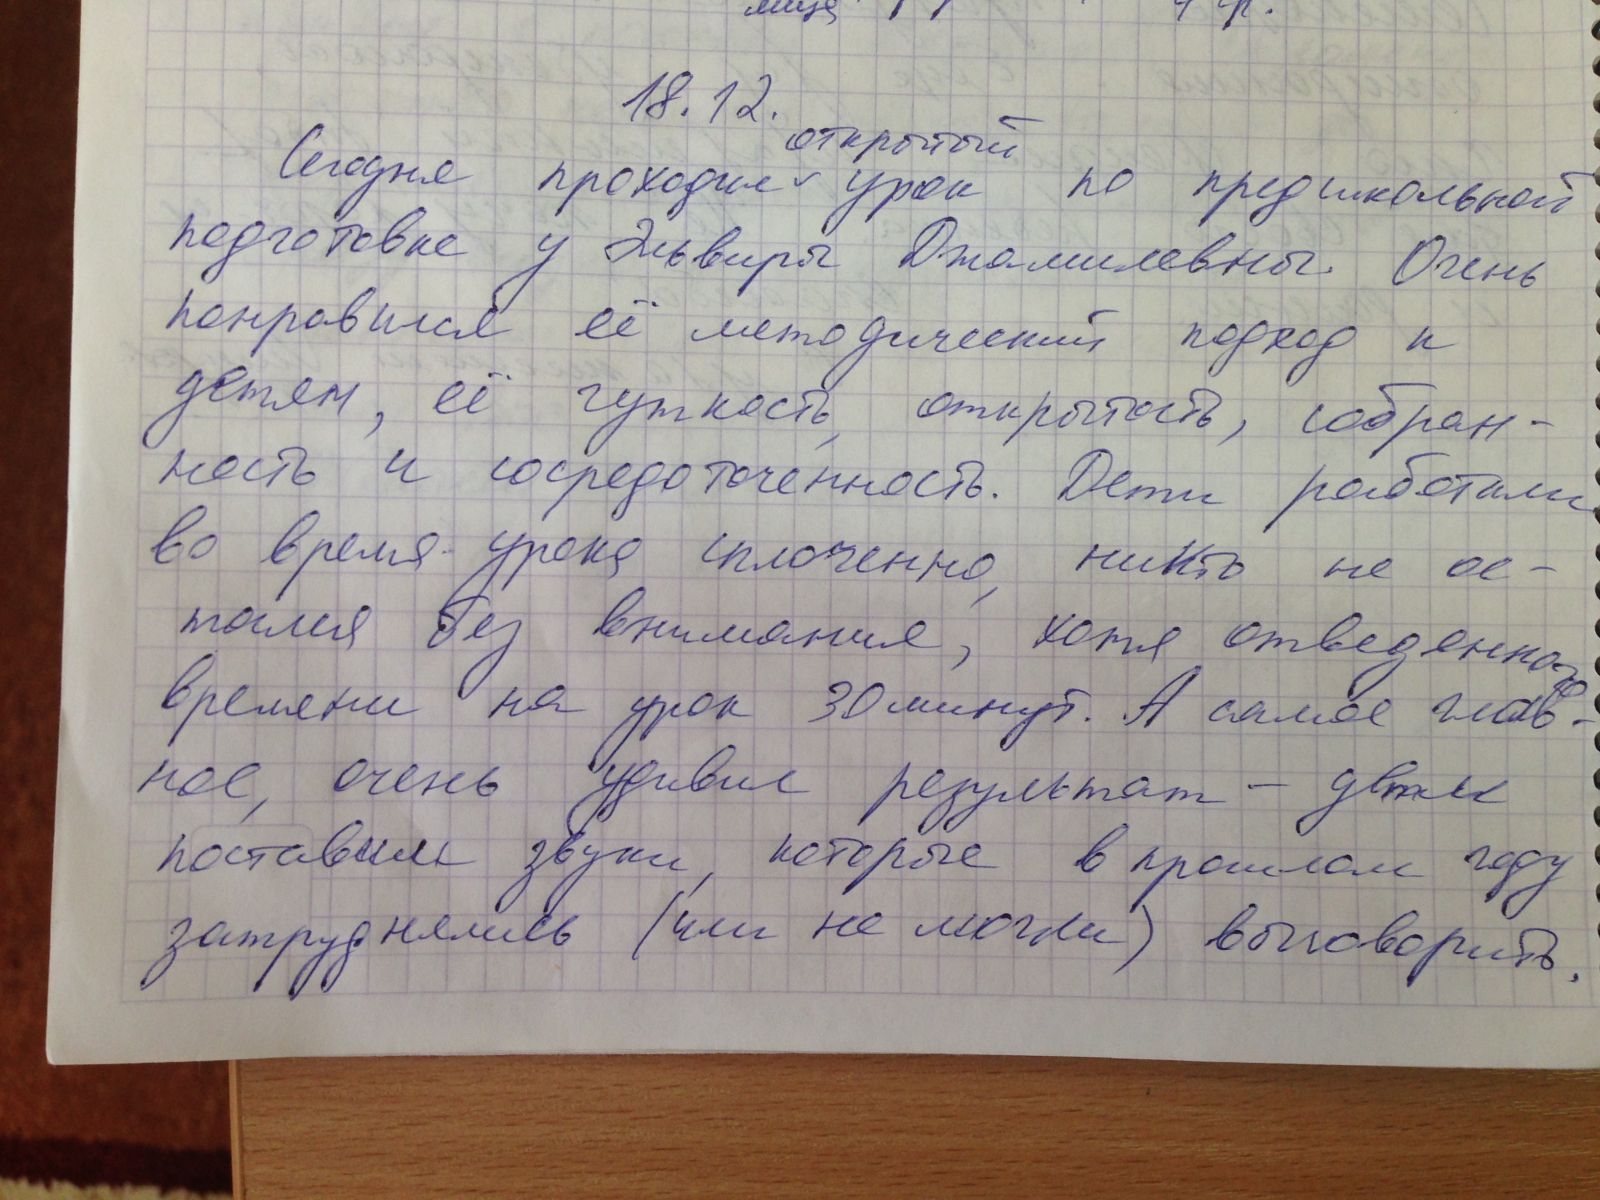 18.12.
открытый
Сегодня проходил урок по предшкольной
подготовке у Эльвиры Джамилевны. Очень
понравился её методический подход к
детям, её чуткость, открытость, собран-
ность и сосредоточенность. Дети работали
во время урока сплоченно, никто не ос-
тался без внимания, хотя отведенного
времени на урок 30 минут. А самое глав-
ное, очень удивил результат - детки
поставили звуки, которые в прошлом году
затруднялись (или не могли) выговорить.